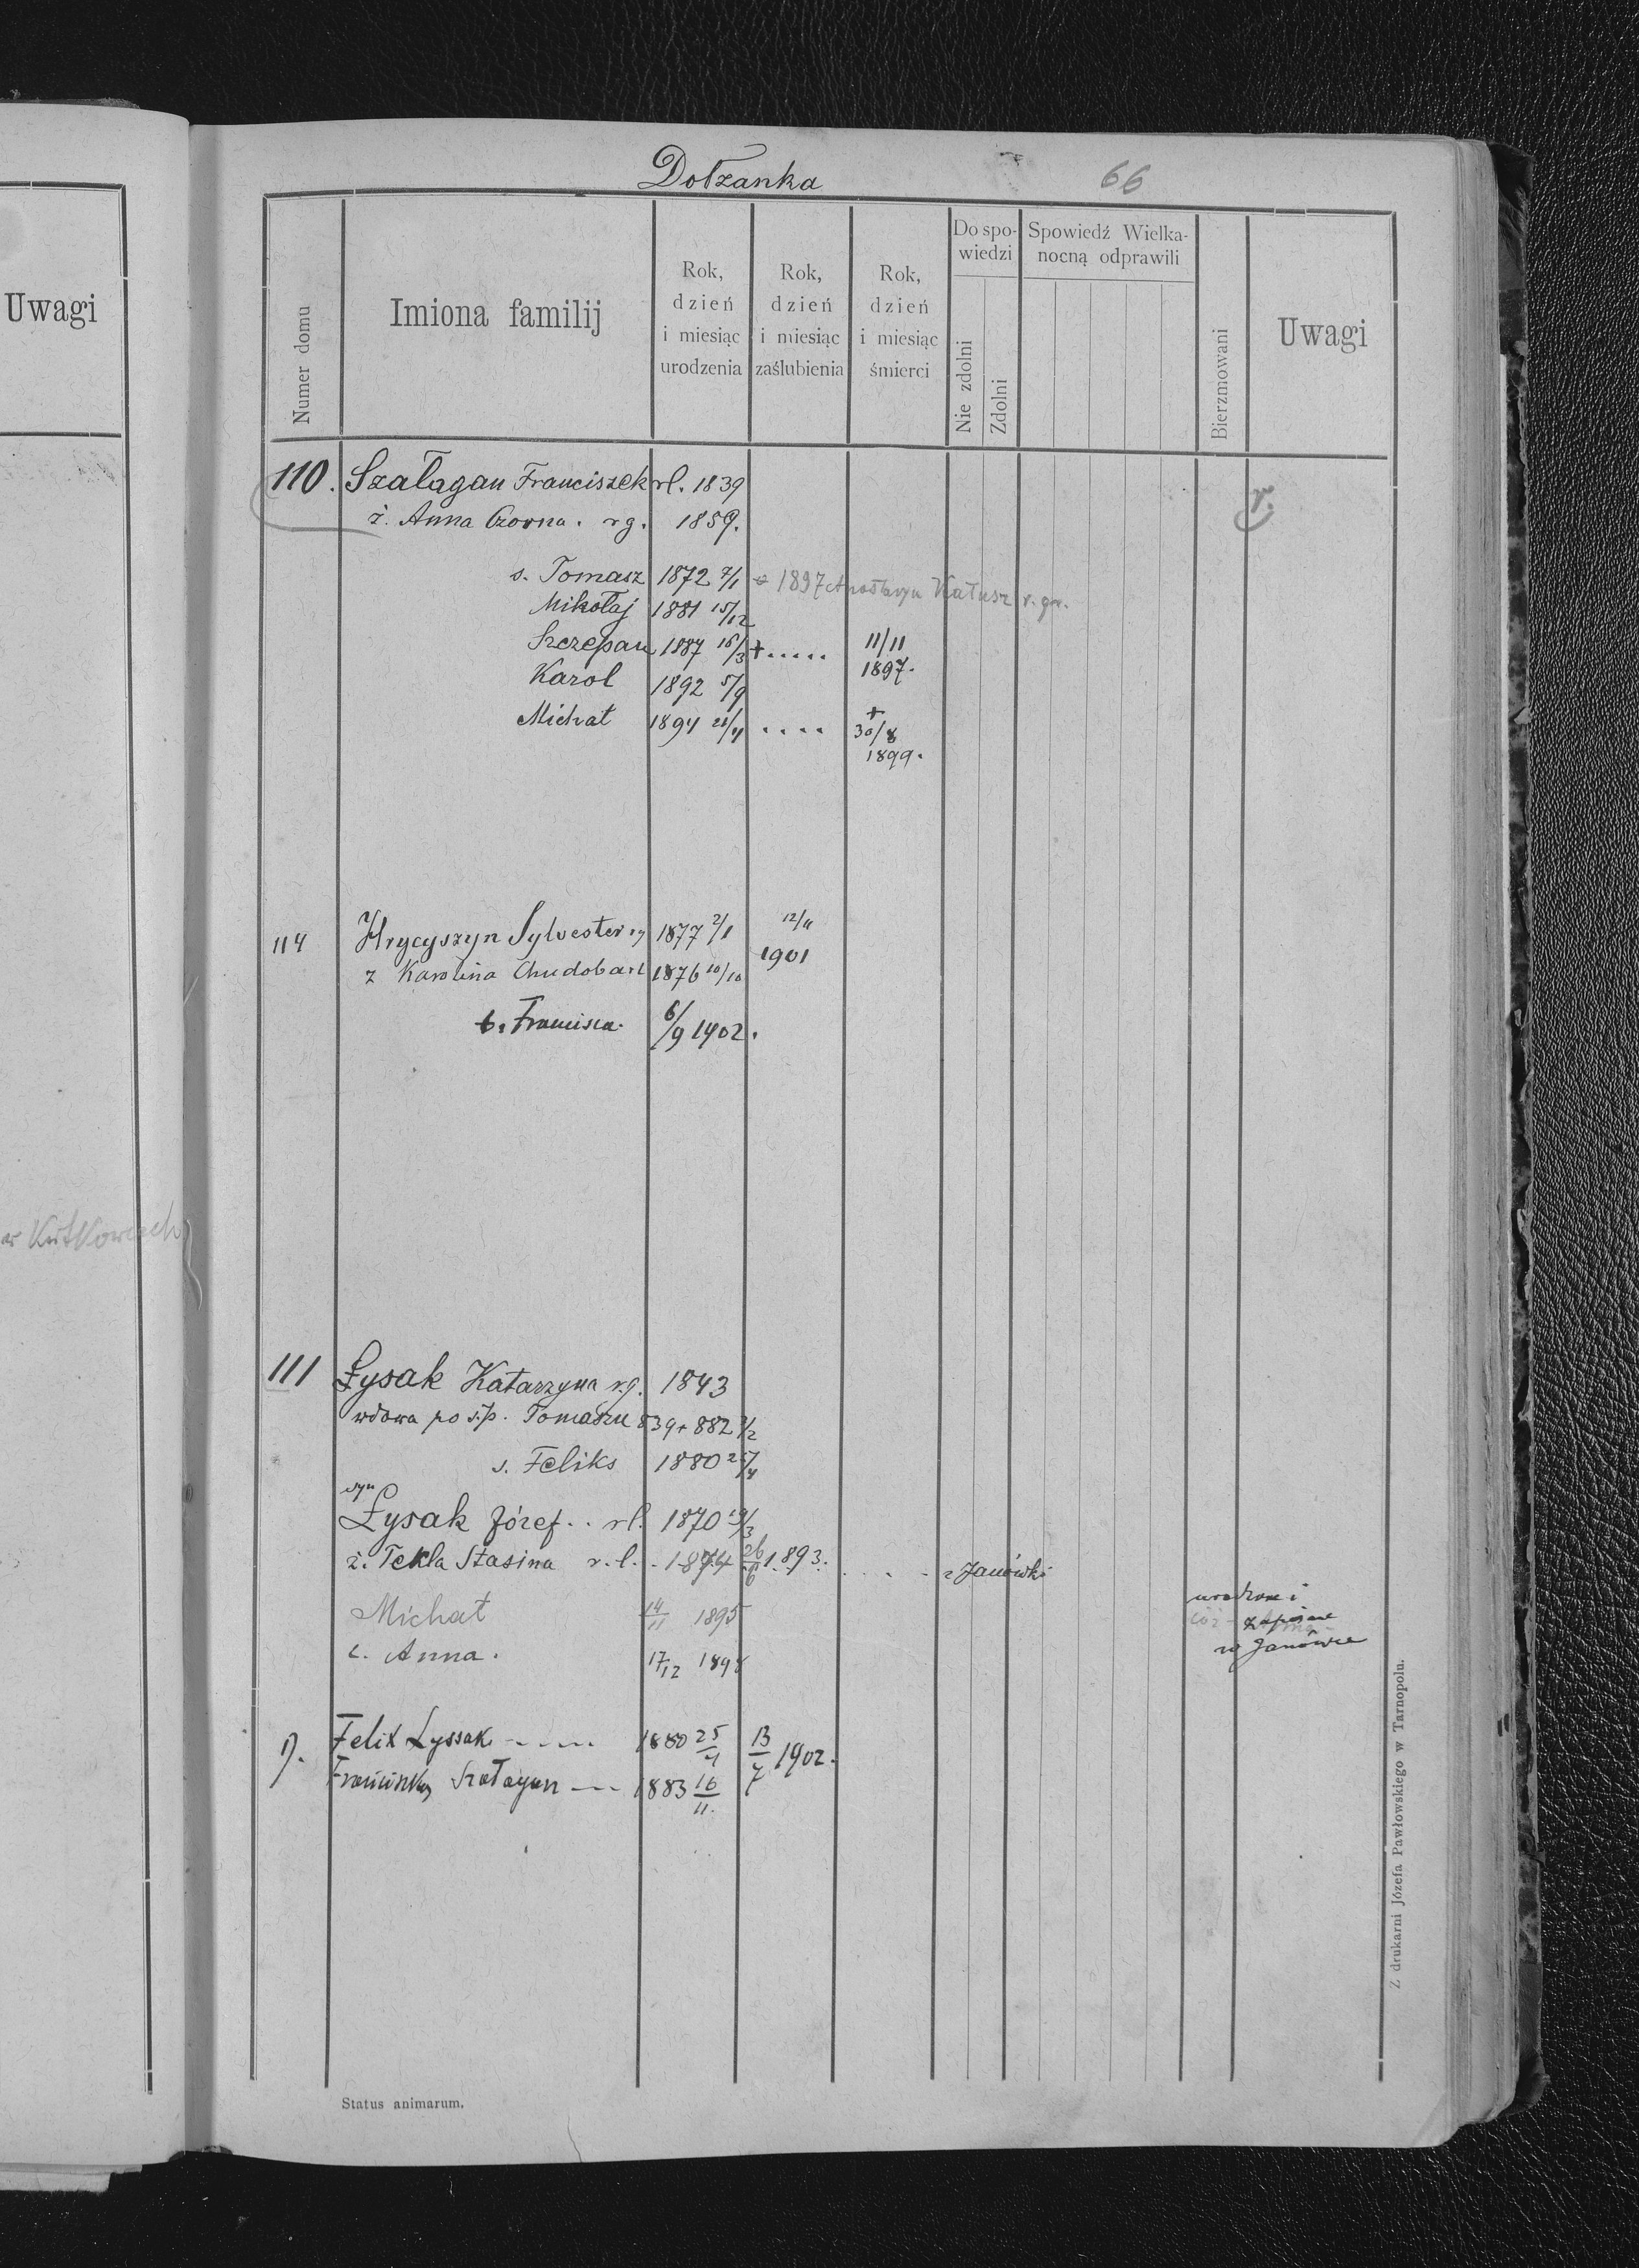 Uwagi
w Kutkowcach
Dołzanka
66
Numer domu
Imiona familij
Rok, dzień i miesiąc urodzenia
Rok, dzień i miesiąc zaślubienia
Rok, dzień i miesiąc śmierci
Do spowiedzi
Nie zdolni
Zdolni
Spowiedź Wielkanocną odprawili
Bierzmowani
Uwagi
110. Szałagan Franciszek rl. 1839
r.
ż. Anna Czorna. rg. 1859.
s. Tomasz 1872 7/1 1897 Katusz r. gr.
Mikołaj 1881 15/12
Szczepan 1887 16/3 + ..... 11/11 1897.
Karol 1892 5/9
Michał 1894 21/4 .... + 30/8 1899.
114 Hrycyszyn Sylvester rg 1877 2/1 12/11 1901
z Karolina Chudobart 1876 10/10
6/9 1902.
111 Łysak Katarzyna r.g. 1843
wdowa po s.p. Tomaszu 839 + 882 2/2
s. Feliks 1880 25/4
syn
Łysak Józef .. rl. 1870 19/3
ż. Tekla Stasina r. l. . 1874 26/6 1893. . . . . z Janówki
Michał 14/11 1895
c. Anna. 17/12 1898
w Janówce
Felix Lyssak ---- 1880 25/4 13/7 1902.
Szałagan --- 1883 16/11.
Status animarum.
Z drukarni Józefa Pawłowskiego w Tarnopolu.